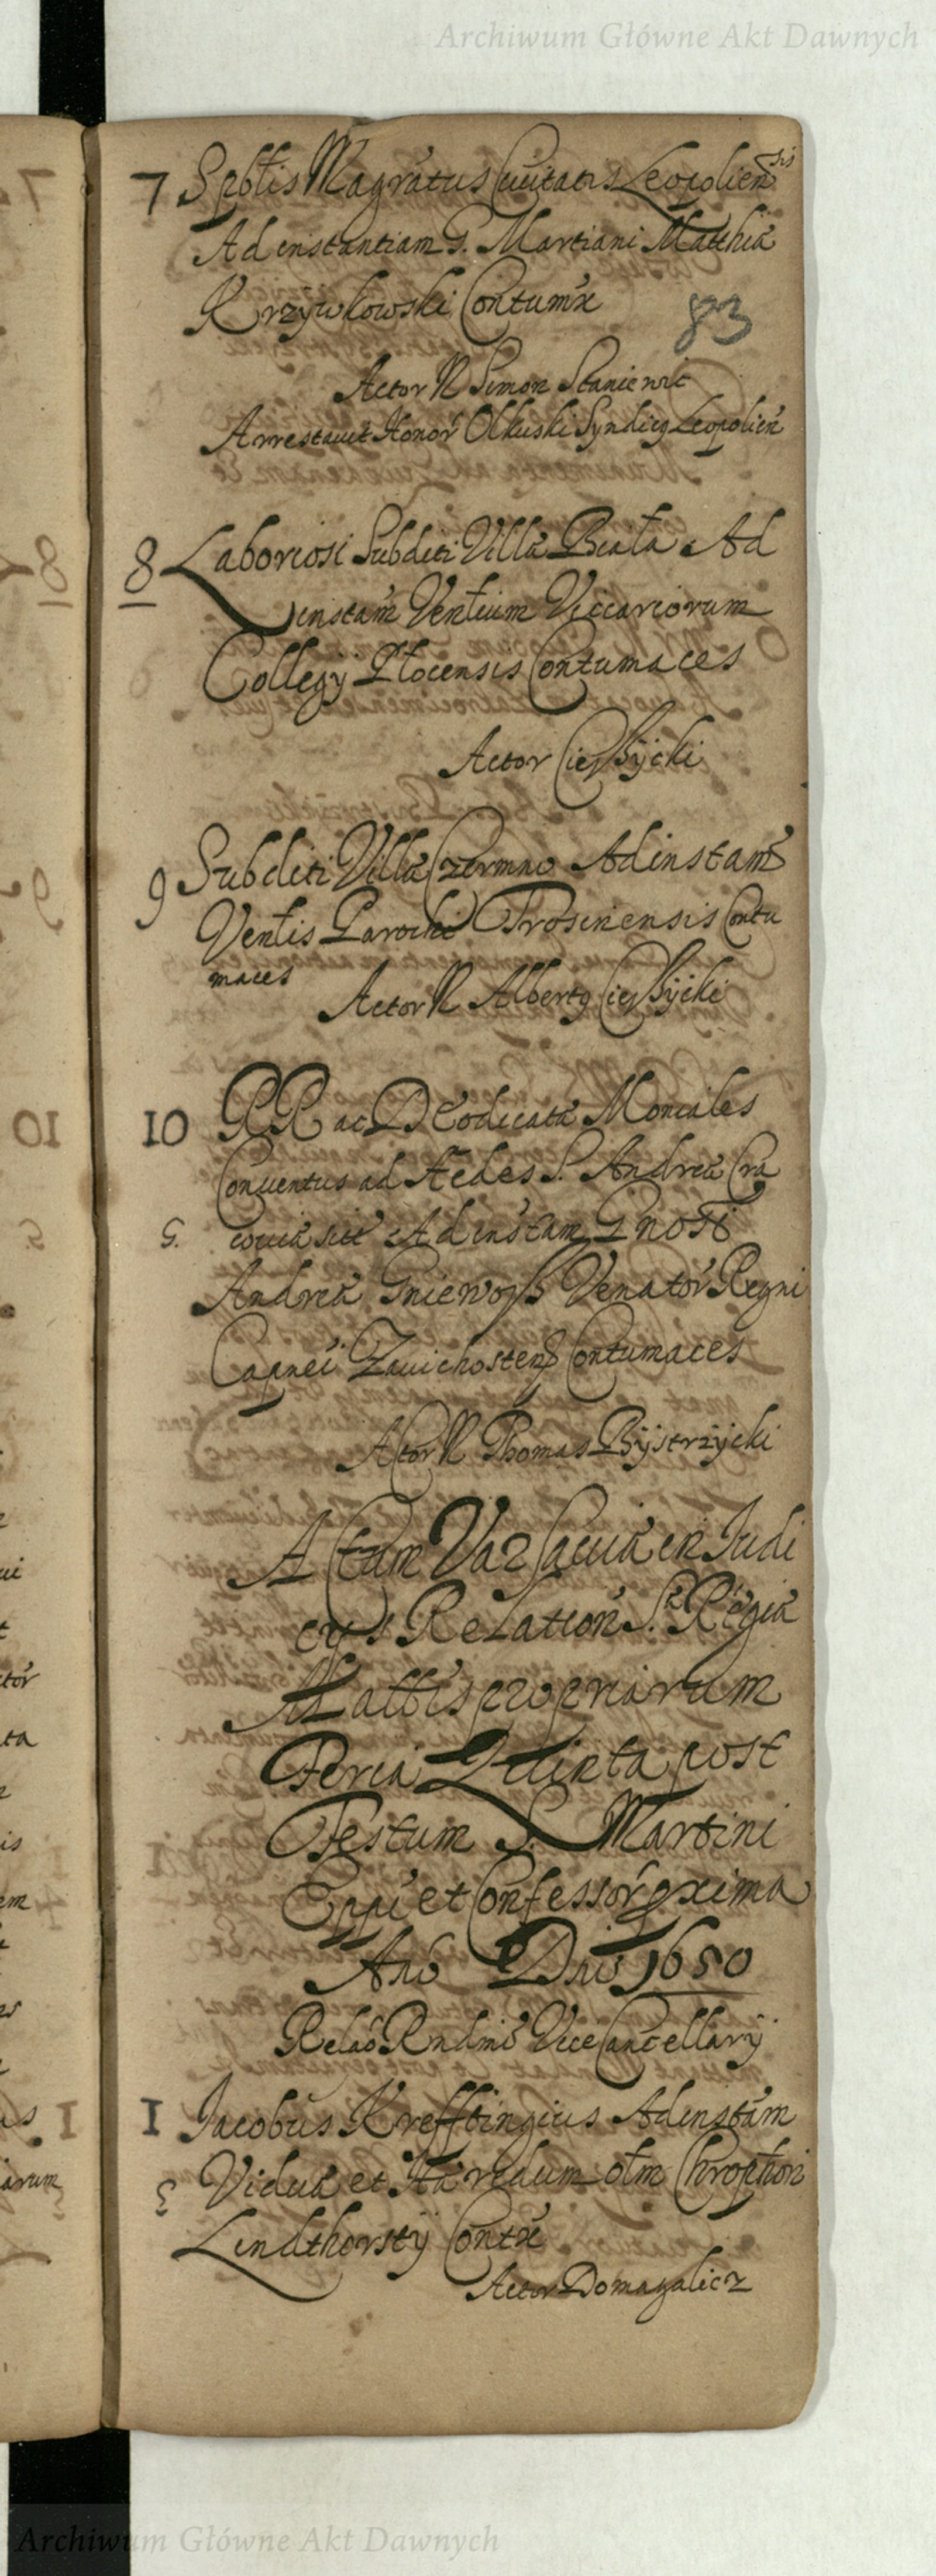 Archiwum Główne Akt Dawnych
7 Spbtis Magratus Civitatis Leopolien sis
Ad instantiam G. Martiani Matthiæ
Krzywkowski Contum̄x
83
Actor N Simon Staniewic
Arrestavit Honor Olkuski Syndicg Leopolien
8 Laboriosi Subditi Villæ Biała Ad
instam Ventium Viccariorum
Collegij Plocensis Contumaces
Actor Cieszycki
9 Subditi Villæ Czermno Ad instam
Ventis Parochi Trosinensis Contu
maces
Actor N Albertg Cieszycki
10 RR ac Deodicatæ Moniales
Conventus ad Aedes S. Andreæ Cra
G. coviæ sitt Ad instam Gnosi
Andreæ Gniewosz Venator Regni
Capnei Zawichostens Contumaces
Actor N Thomas Bystrzycki
Actum Varsaviæ in Judi
cijs Relation S.Ræ Regiæ
Mattis propriarum
Feria Quinta post
Festum S. Martini
Eppi et Confessor pxima
Ano Dni 1650
Relao Rndmi ViceCancellarij
1 Jacobus Krefftingius Ad instam
Viduæ et Hæredum olm Chrophori
Lindthorstij Contx
Actor Domagalicz
Archiwum Główne Akt Dawnych